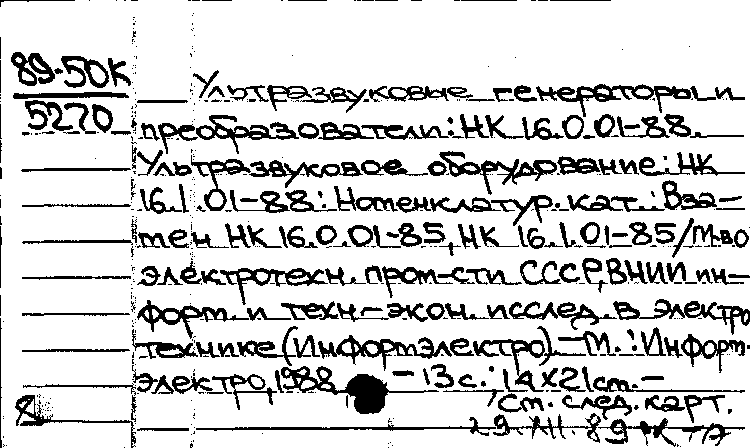 89-50К
5270
Ультразвуковые генераторы и
преобразователи: НК 16.0.01-88.
Ультразвуковое оборудование: НК
16.1.01-88: Номенклатур. кат.: Вза-
мен НК 16.0.01-85, НК 16.1.01-85/М-во
электротехн. пром-сти СССР, ВНИИ ин-
форм. и техн-экон. исслед. в электро
технике (Информэлектро). - М.: Информ-
электро, 1988 - 13 с.; 14 х 21 см. -
См. след. карт.
29.XII.89